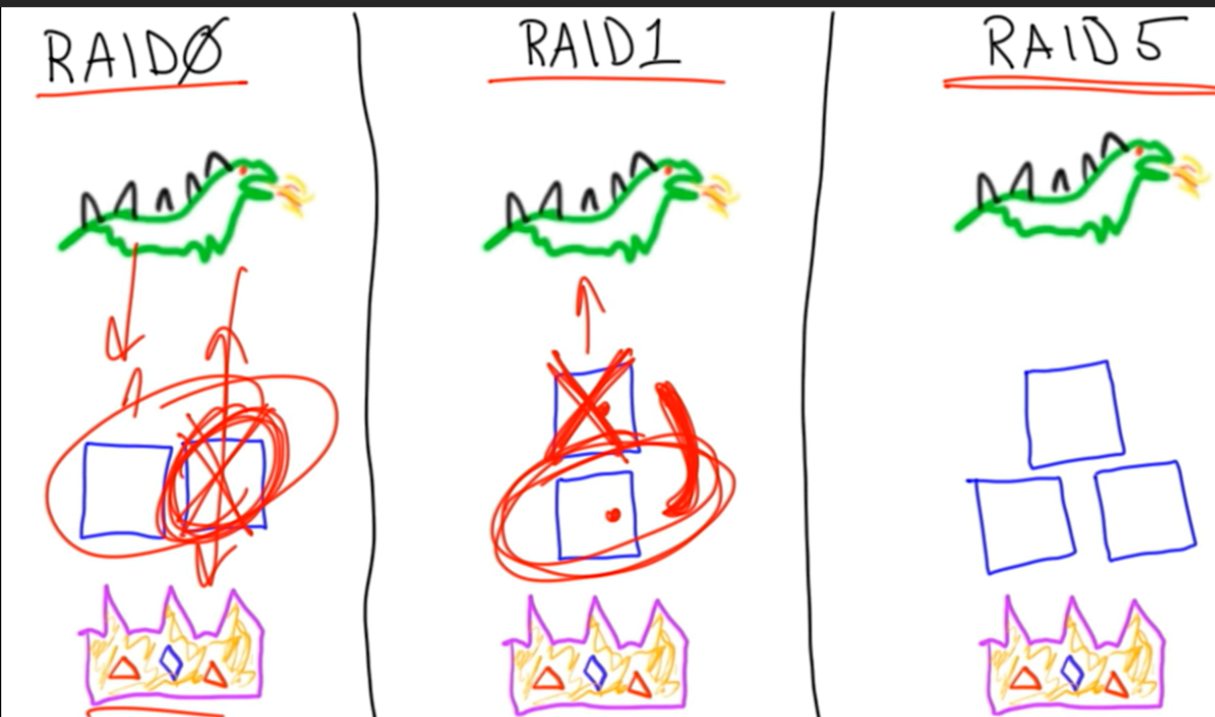 RAID0
RAID1
RAID 5